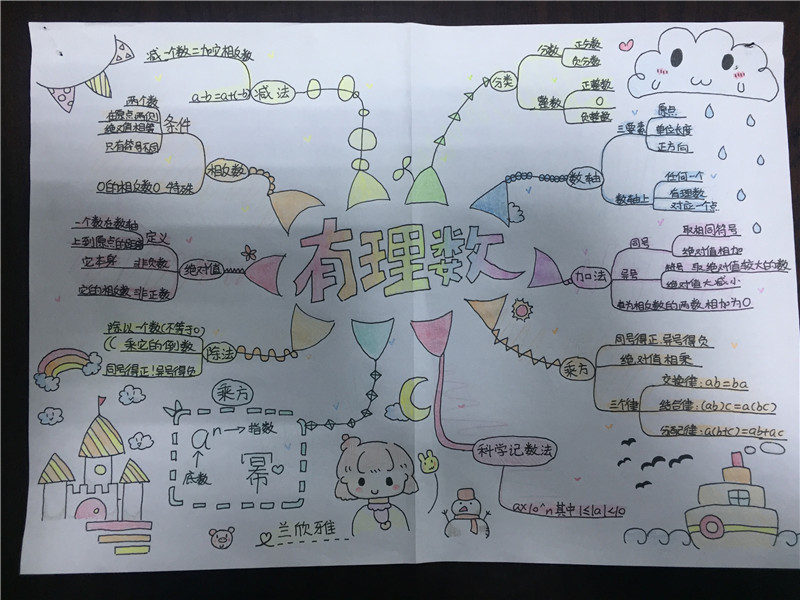 有理数
分类
分数
正分数
负分数
整数
正整数
0
负整数
数轴
三要素
原点
单位长度
正方向
数轴上
任何一个
有理数
对应一个点
加法
同号
取相同符号
绝对值相加
异号
符号 取绝对值较大的数
绝对值大减小
互为相反数的两数相加为0
乘方
同号得正.异号得负
绝对值相乘
三个律
交换律:ab=ba
结合律:(ab)c=a(bc)
分配律:a(b+c)=ab+ac
科学记数法
a×10^n 其中1≤|a|<10
减法
减一个数=加它相反数
a-b=a+(-b)
相反数
条件
两个数
在原点两侧
绝对值相等
只有符号不同
0的相反数0 特殊
绝对值
一个数在数轴
上到原点的距离
定义
它本身 非负数
它的相反数 非正数
除法
除以一个数(不等于0)
乘它的倒数
同号得正!异号得负
乘方
aⁿ→指数
底数
幂
兰欣雅